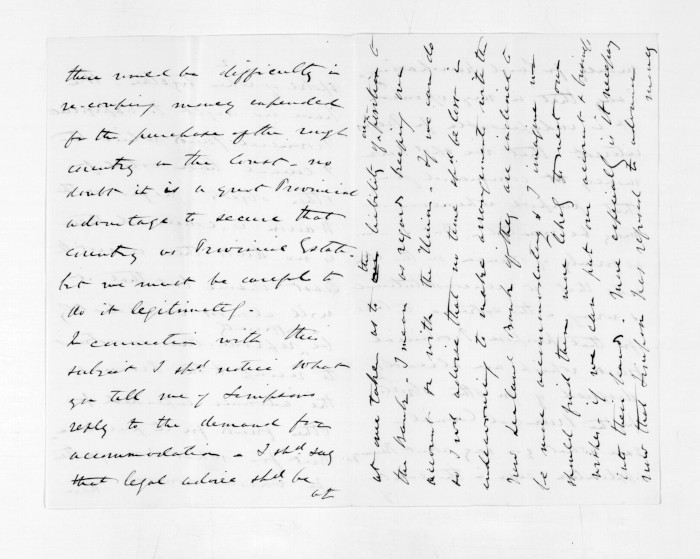 there would be difficulty in
re-couping money expended
for the purchase of the rough
country on the Coast - no
doubt it is a great Provincial
advantage to secure that
country as Provincial Estate -
but we must be careful to
do it legitimately.
In connection with this
subject I shd notice what
you tell me of Simpsons
reply to the demand for
accommodation - I shd say
that legal advice shd be
at
at once taken as to the liability & position to
the Bank. I mean as regards keeping our
account on with the Union. If we can do
so I wd advise that no time shd be lost in
endeavouring to make arrangement with the
New Zealand Bank if they are inclined to
be more accommodating & I imagine we
should find them more likely to meet our
wishes if we can put our account & business
into their hands. More especially is it necessary
now that Simpson has refused to advance
money